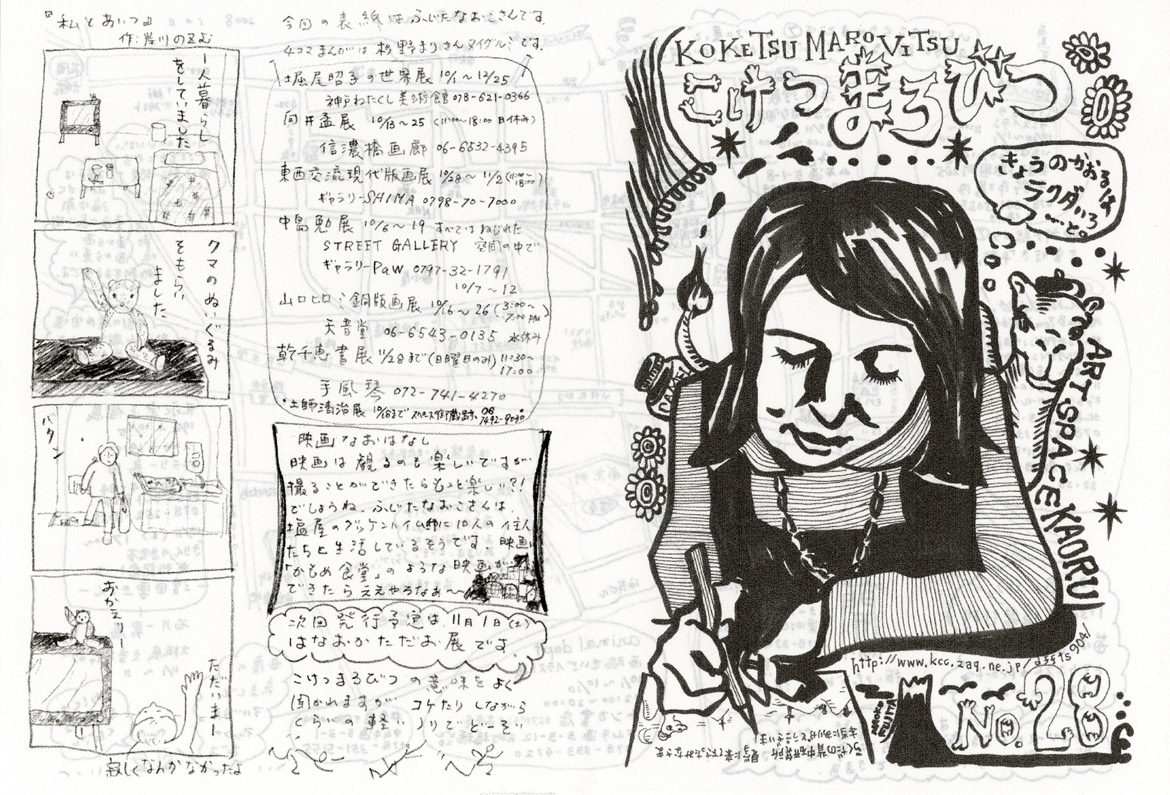 『私とあいつ』
一人暮らし
をしていました
クマのぬいぐるみ
をもらい
ました。
バタン
おかえりー
ただいまー
寂しくなんかなかったよ
今回の表紙はふじたなおこさんです。
4コマまんがは
です。
堀尾昭子の世界展 10/1〜12/25
神戸わたくし美術館 078-621-0366
向井孟展
〜25 (11:00〜18:00 日休み)
信濃橋画廊 06-6532-4395
東西交流現代版画展 10/28〜11/2
ギャラリーSHIMA 0798-70-7000
中島勉展 10/6〜19 すべてはねじれた
STREET GALLERY 空間の中で
ギャラリーPaw 0797-32-1791
10/7〜12
山口ヒロミ銅版画展 10/16〜26 (3:00〜7:00 PM)
天音堂 06-6543-0135 水休み
乾千恵書展 11/28まで(日曜日のみ) 11:30〜17:00
手風琴 072-741-4270
土師清治展
映画なおはなし
映画は観るのも楽しいですが
撮ることができたらもっと楽しい?!
でしょうね。ふじたなおこさんは、
塩屋のグッゲンハイム邸に10人の住人
たちと生活しているそうです。映画
「かもめ食堂」のような映画が
できたらええやろなあ〜
次回発行予定は、11月1日(土)
はなおかただお展です。
こけつまろびつの意味をよく
聞かれますが コケたりしながら
くらいの軽いノリでどーぞ
KOKETSU MAROVITSU
こけつまろびつ
きょうのかおるは
ラクダいろ
…と。
ART SPACE KAORU
NAOKO FUJITA
No.28